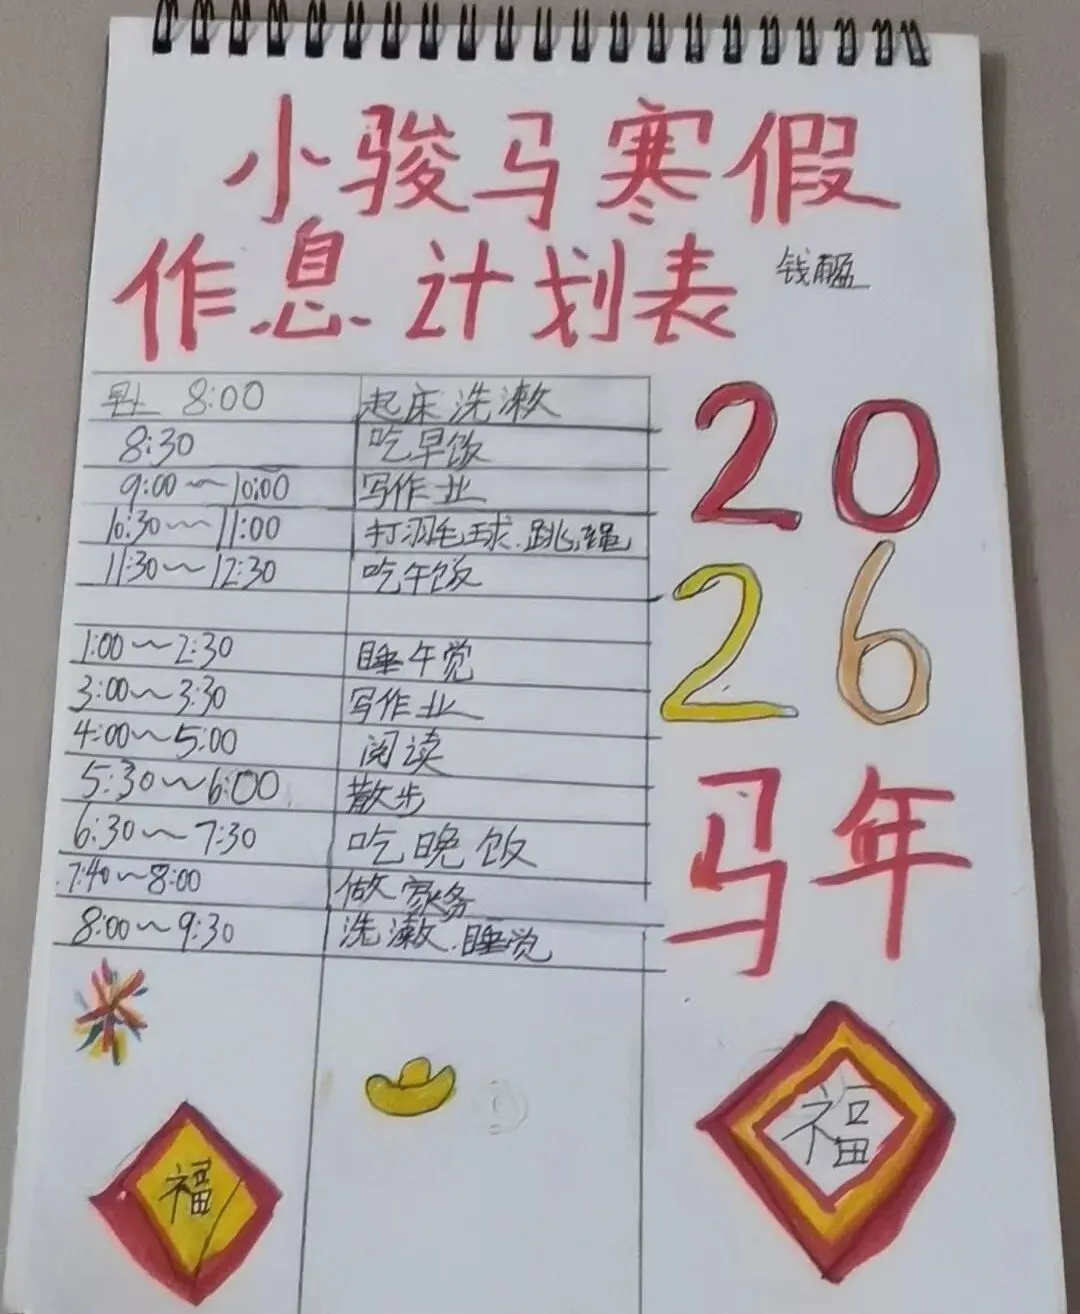 小骏马寒假
作息计划表
早上 8:00 起床洗漱
8:30 吃早饭
9:00~10:00 写作业
10:30~11:00 打羽毛球.跳绳
11:30~12:30 吃午饭
1:00~2:30 睡午觉
3:00~3:30 写作业
4:00~5:00 阅读
5:30~6:00 散步
6:30~7:30 吃晚饭
7:40~8:00 做家务
8:00~9:30 洗漱.睡觉
20
26
马年
福
福